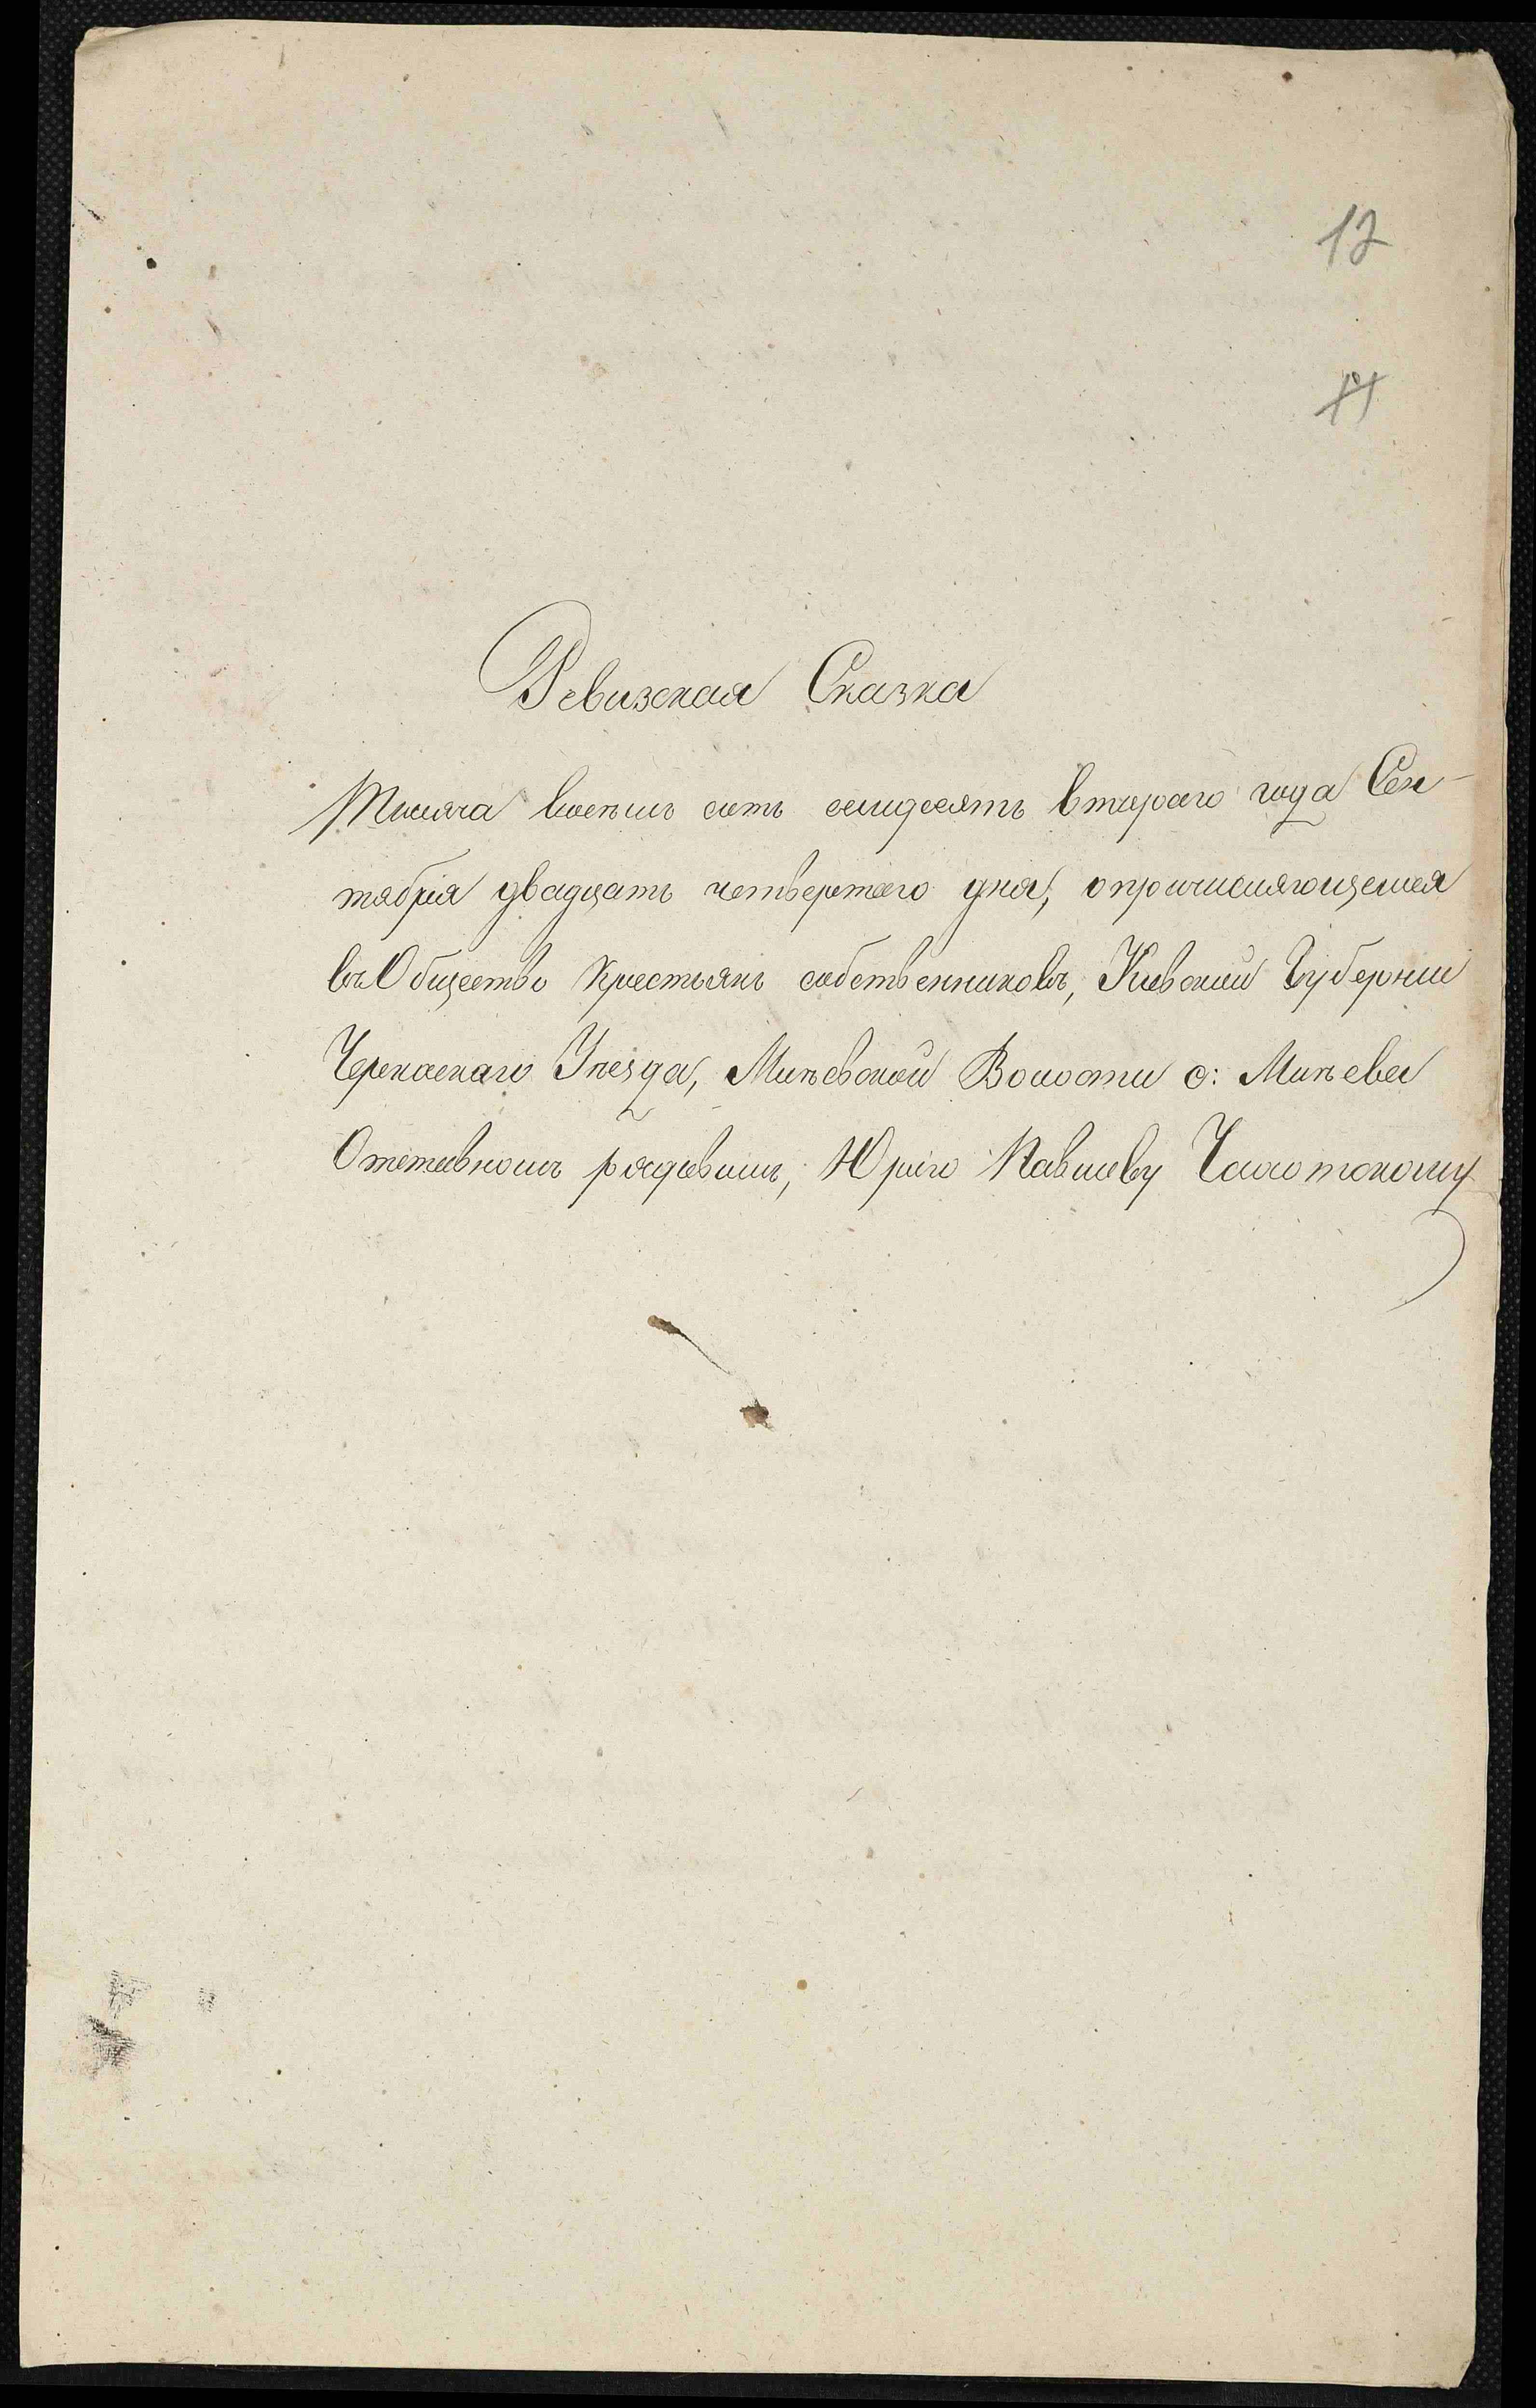 12
Ревизская Сказка
Тысяча восемь сотъ семидесятъ втораго года Сен-
тября двадцать четвертаго дня, о причисляющемся
въ Общество крестьянъ собственниковъ, Киевской Губернии
Черкаскаго Уѣзда, Млѣевской Волости с: Млѣева
Отставномъ рядовымъ, Юрію Павлову